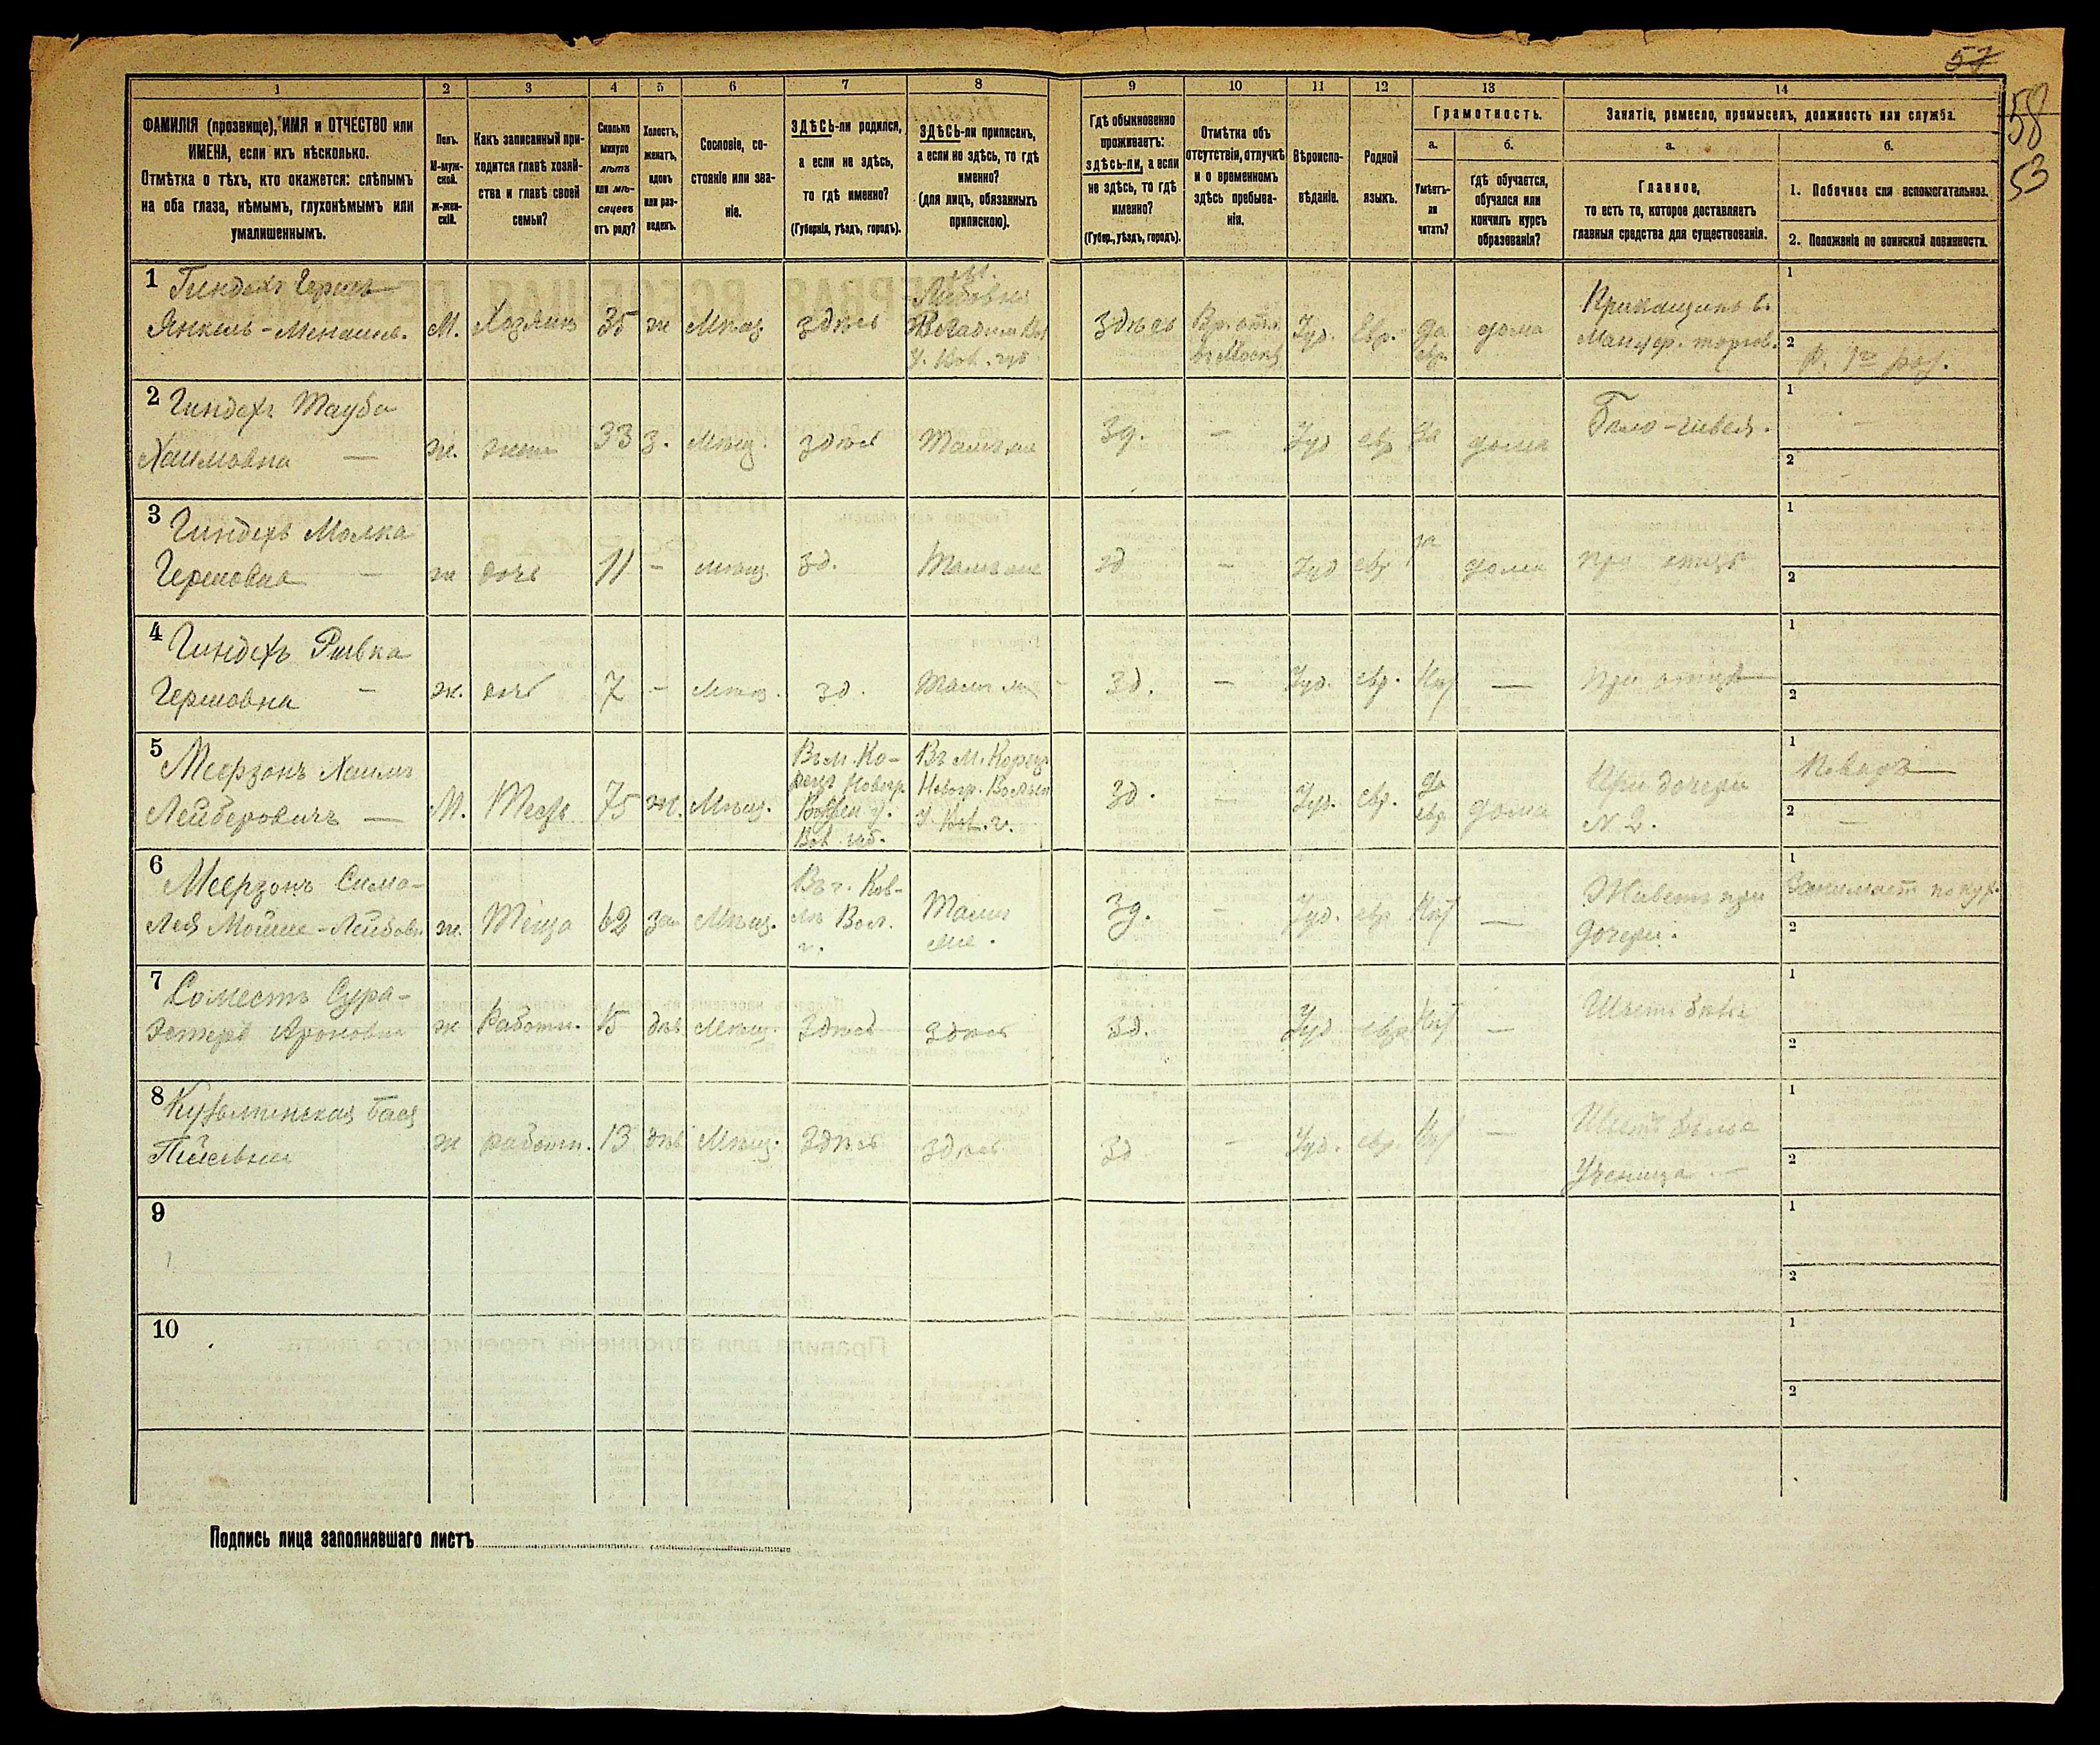 57
58
53
1
2
3
4
5
6
7
8
9
10
11
12
13
14
ФАМИЛІЯ (прозвище), ИМЯ и ОТЧЕСТВО или
ИМЕНА, если ихъ нѣсколько.
Отмѣтка о тѣхъ, кто окажется: слѣпымъ
на оба глаза, нѣмымъ, глухонѣмымъ или
умалишеннымъ.
Полъ.
М-муж-
ской.
Ж-жен-
скій.
Какъ записанный при-
ходится главѣ хозяй-
ства и главѣ своей
семьи?
Сколько
минуло
лѣтъ
или мѣ-
сяцевъ
отъ роду?
Холостъ,
женатъ,
вдовъ
или раз-
веденъ.
Сословіе, со-
стояніе или зва-
ніе.
ЗДѢСЬ-ли родился,
а если не здѣсь,
то гдѣ именно?
(Губернія, уѣздъ, городъ).
ЗДѢСЬ-ли приписанъ,
а если не здѣсь, то гдѣ
именно?
(для лицъ, обязанныхъ
припискою).
Гдѣ обыкновенно
проживаетъ:
здѣсь-ли, а если
не здѣсь, то гдѣ
именно?
(Губер., уѣздъ, городъ).
Отмѣтка объ
отсутствіи, отлучкѣ
и о временномъ
здѣсь пребыва-
ніи.
Вѣроиспо-
вѣданіе.
Родной
языкъ.
Грамотность.
а.
Умѣетъ-
ли
читать?
б.
Гдѣ обучается,
обучался или
кончилъ курсъ
образованія?
Занятіе, ремесло, промыселъ, должность или служба.
а.
Главное,
то есть то, которое доставляетъ
главныя средства для существованія.
б.
1. Побочное или вспомогательное.
2. Положеніе по воинской повинности.
1 Гиндехъ Гершъ
Янкель-Менашев.
М. Хозяинъ 35 ж Мѣщ. здѣсь
здѣсь
Іуд. Евр. да
евр.
дома
Прикащикъ в.
Мануф. торгов.
1
2
2 Гиндехъ Тауба
Хаимовна —
ж. жена 33 з. Мѣщ. здѣсь Тамъ же
зд. — Іуд евр да дома
Бѣло-швея.
1 —
2 —
3 Гиндехъ Малка
Гершовна —
ж дочь 11 — мѣщ. зд. Тамъ же
зд — Іуд евр да дома при отцѣ
1
2
4 Гиндехъ Ривка
Гершовна —
ж. дочь 7 — мѣщ. зд. Тамъ же —
зд. — Іуд. евр. Нѣт — при отцѣ
1
2
5 Меерзонъ Хаимъ
Лейберовичъ —
М. Тесть 75 ж. Мѣщ.
Въ м. Ко-
рецъ Новогр.
Волын у.
Вол губ.
Въ м. Корец.
Новогр. Волын
у. Вол. г.
зд. — Іуд. евр. да
евр
дома
При дочери
N 2.
1
2 —
6 Меерзонъ Сима-
Лея Мошие-Лейбовн
ж. Теща 62 зам Мѣщ.
Въ г. Ков-
лѣ Вол.
г.
Тамъ
же.
зд. — Іуд. евр Нѣт —
Живетъ при
дочери.
1
2
7 Сура-
Эстеръ Ароновна
ж Работн. 15 дѣв Мѣщ. Здѣсь здѣсь
зд. Іуд евр Нѣт — Шьетъ бѣлье
1
2
8 Кузьминская Бася
ж работн. 13 дѣв Мѣщ. Здѣсь здѣсь
зд — Іуд. евр. Нѣт — Шьетъ бѣлье
Ученица —
1
2
9
1
2
10
1
2
Подпись лица заполнявшаго листъ